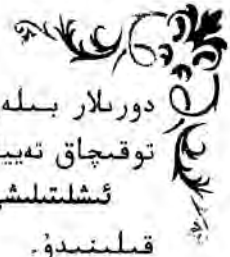 دورىلار بىلە
توقىچاق تەيي
ئىشلىتىلىشى
قىلىنىدۇ.